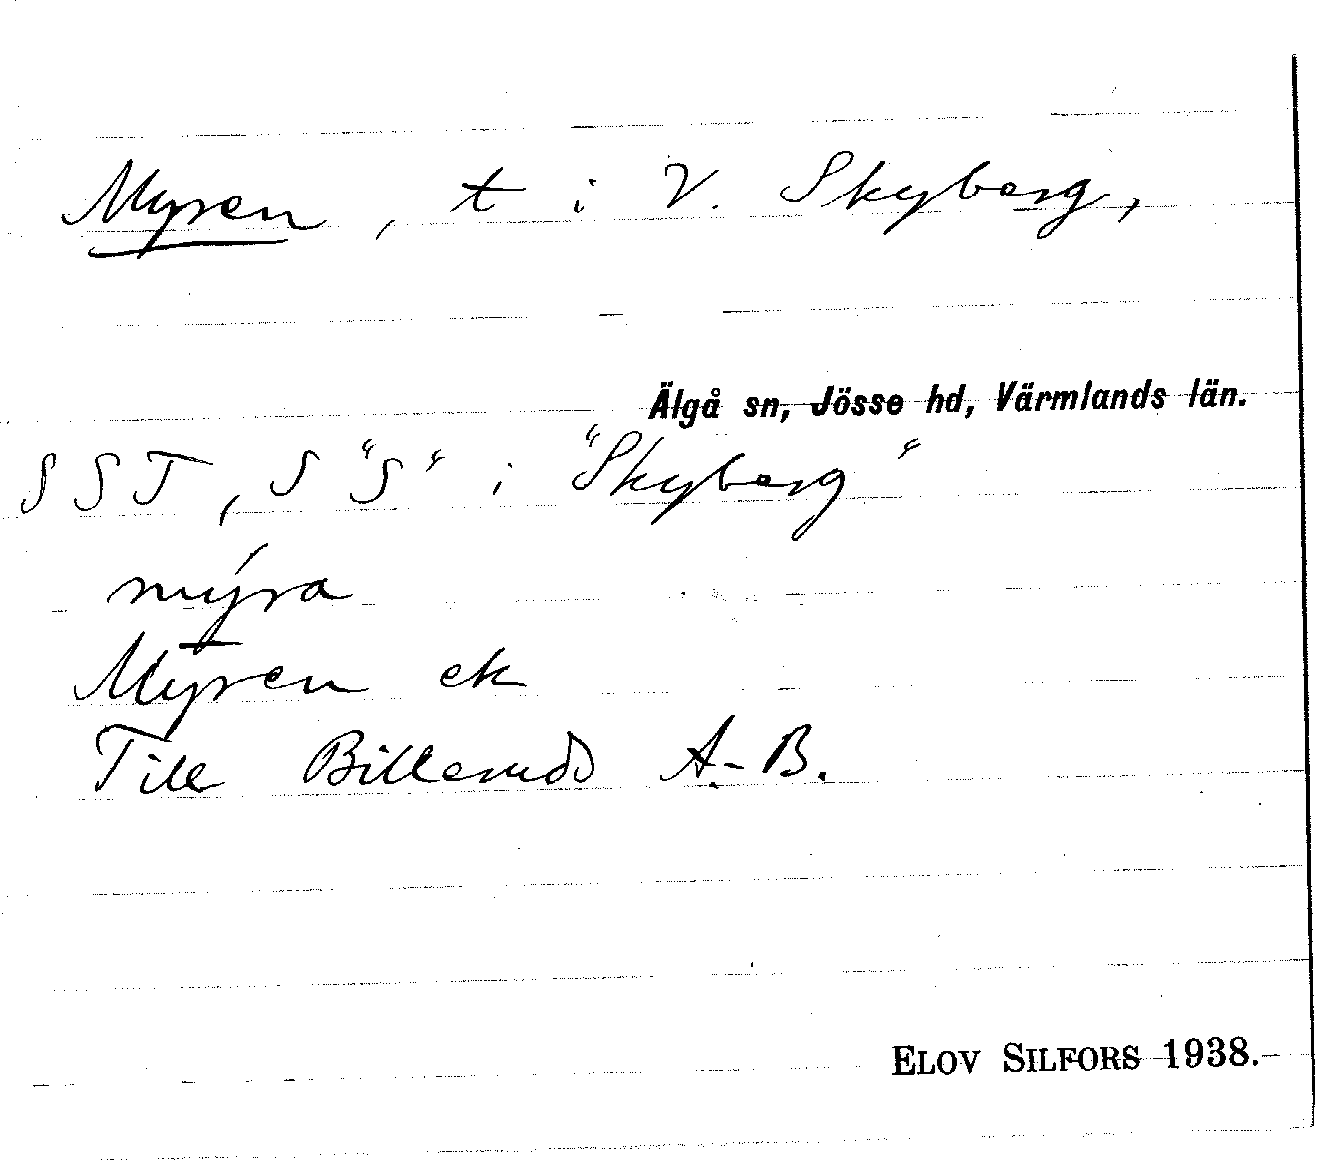 Myren, t i V. Skyberg,
Älgå sn, Jösse hd, Värmlands län.
S S T, S "S" i "Skyberg"
mýra
Myren ek
Till Billeruds A.-B.
ELOV SILFORS 1938.